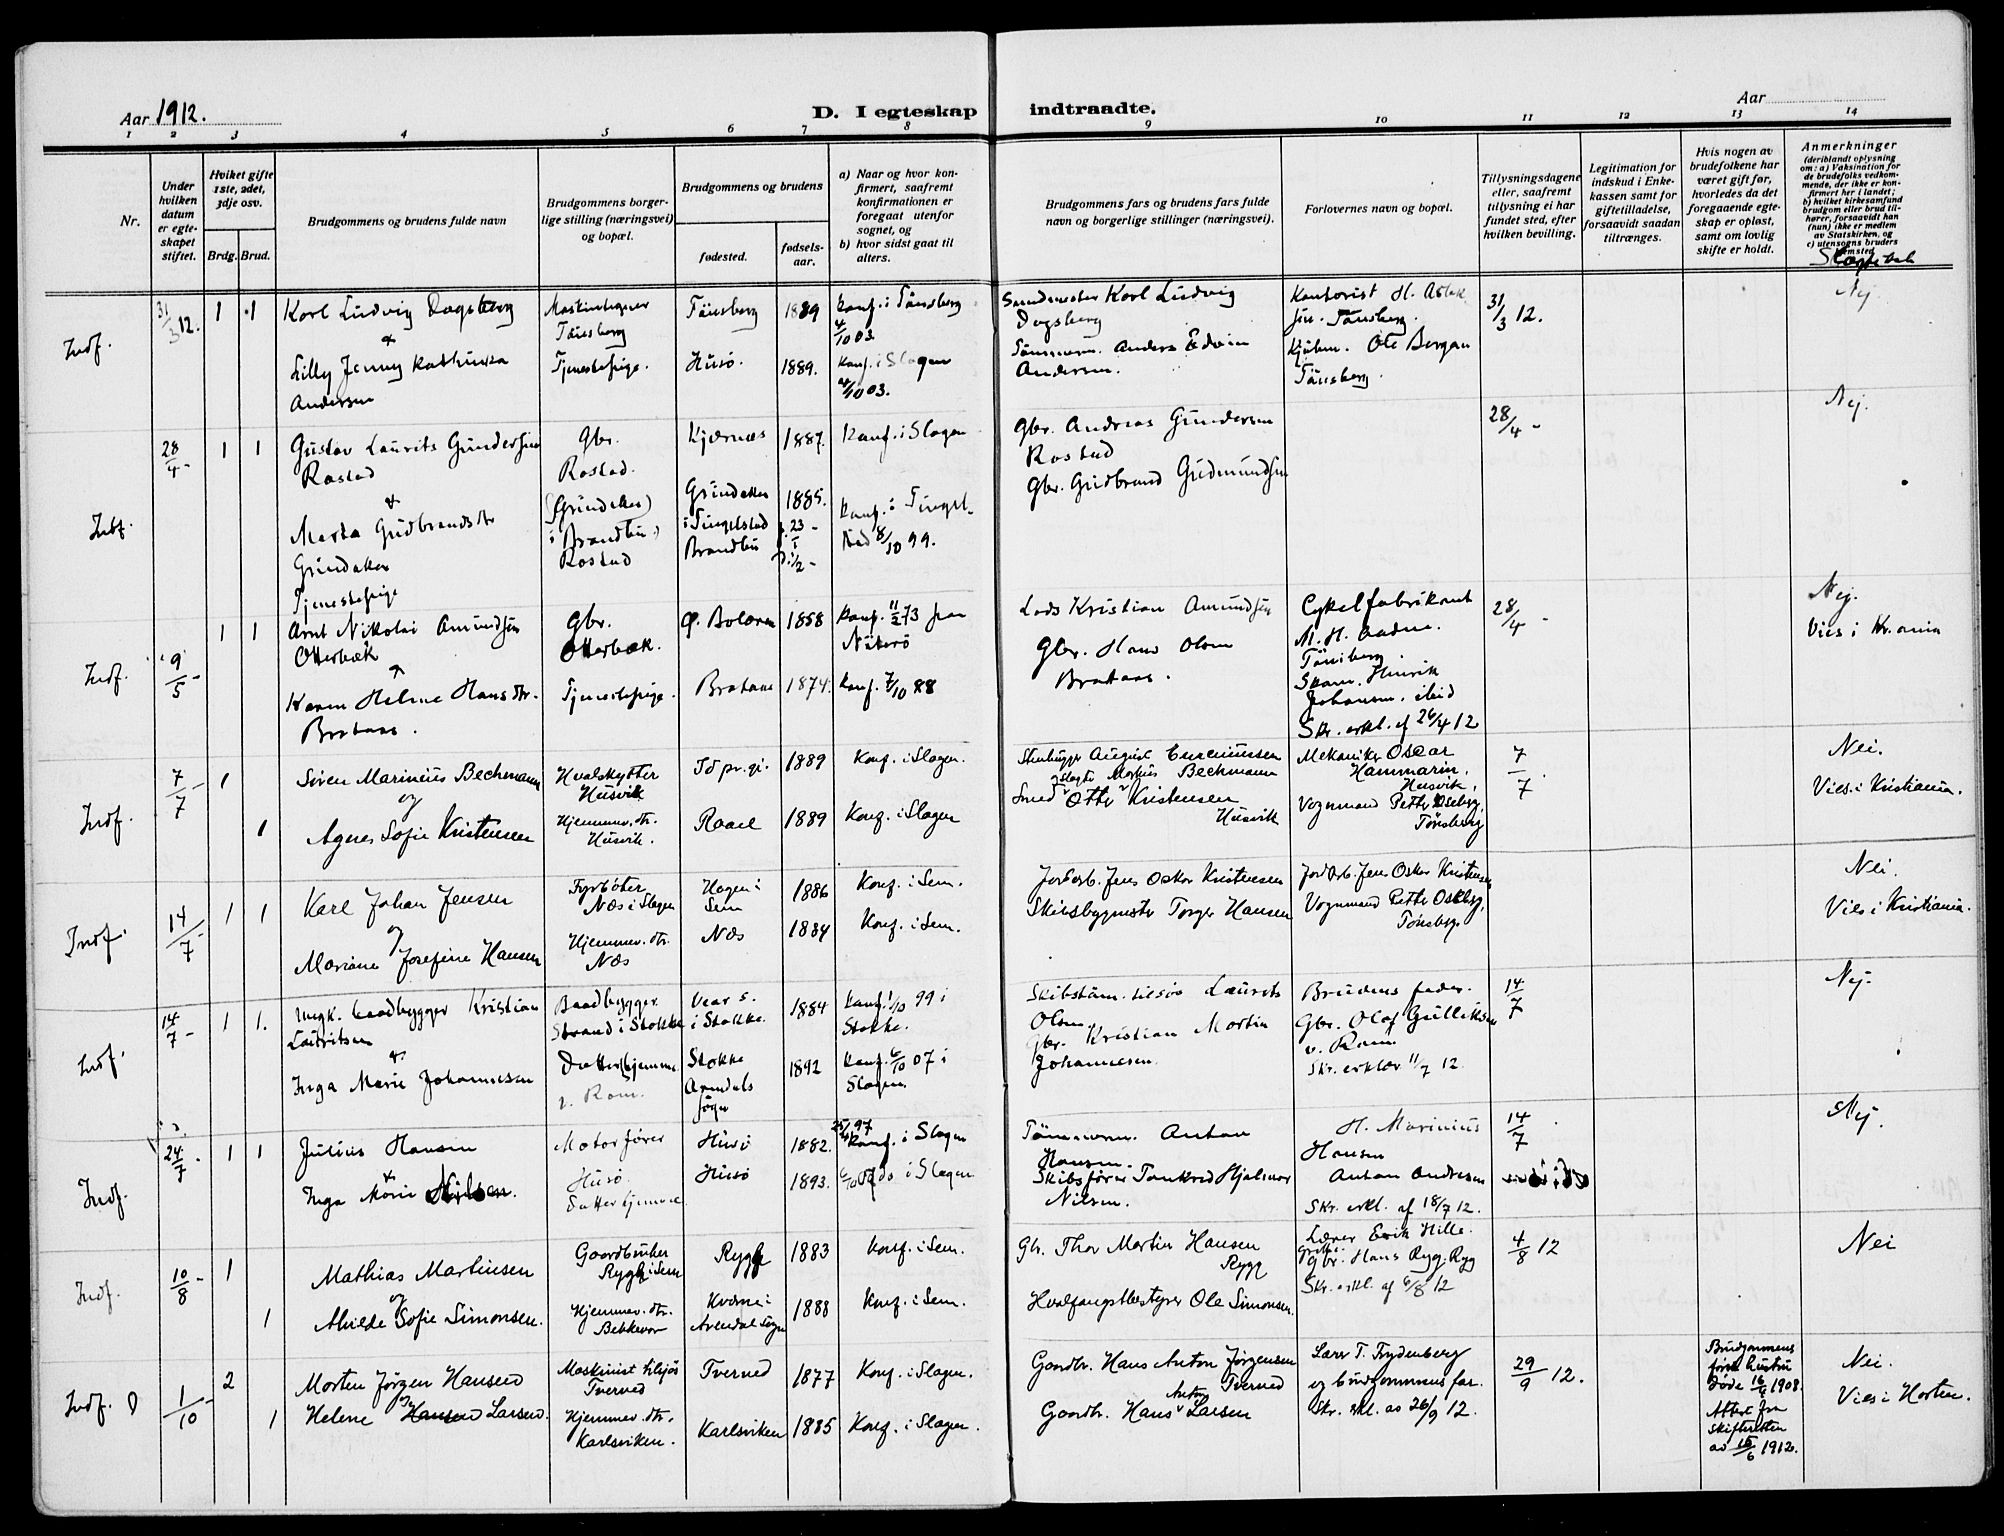 Aar 1912.
D. I egteskap indtraadte.
Aar
1 2 3 4 5 6 7 8 9 10 11 12 13 14
Nr.
Under hvilken datum er egteskapet stiftet.
Hviket gifte 1ste, 2det, 3dje osv.
Brdg. Brud.
Brudgommens og brudens fulde navn
Brudgommens borgerlige stilling (næringsvei) og bopæl.
Brudgommens og brudens
fødested.
fødselsaar.
a) Naar og hvor konfirmert, saafremt konfirmationen er foregaat utenfor sognet, og
b) hvor sidst gaat til alters.
Brudgommens fars og brudens fars fulde navn og borgerlige stillinger (næringsvei).
Forlovernes navn og bopæl.
Tillysningsdagene eller, saafremt tillysning ei har fundet sted, efter hvilken bevilling.
Legitimation for indskud i Enkekassen samt for giftetilladelse, forsaavidt saadan tiltrænges.
Hvis nogen av brudefolkene har været gift før, hvorledes da det foregaaende egteskap er opløst, samt om lovlig skifte er holdt.
Anmerkninger
(deriblandt oplysning om: a) Vaksination for de brudefolks vedkommende, der ikke er konfirmert her i landet; b) hvilket kirkesamfund brudgom eller brud tilhører, forsaavidt han (hun) ikke er medlem av Statskirken, og c) utensogns bruders hjemsted
Indf.
31/3 12.
1 1
Karl Ludvig Dagsberg
&
Lilly Jenny Kathinka
Andersen
Tönsberg
Tjenestepige.
Tönsberg
1889
Husö.
1889.
Konf. i Tönsberg
4/10 03.
Konf. i Slagen
4/10 03.
Karl Ludvig
Dagsberg
Tömmerm. Anders Edvin
Andersen.
Kontorist H.
jun. Tönsberg.
Ole Bergan
Tönsberg.
31/3 12.
Nej
Indf.
28/4 -
1 1
Gustav Laurits Gundersen
Rostad
&
Marta Gudbrandsdtr
Grindaker
Tjenestepige
Gbr.
Rostad.
(Grindaker
i Brandbu)
Rostad
Kjærnæs
1887.
Grindaker
i Tingelstad
Brandbu
1885.
Konf. i Slagen
Konf. i Tingelstad 8/10 99.
Gbr. Andreas Gundersen
Rostad
Gbr. Gudbrand Gudmundsen
28/4 -
Nej.
Indf.
9/5 -
1 1
Arnt Nikolai Amundsen
Otterbæk
Karen Helene Hansdtr.
Brataas.
Gbr.
Otterbæk.
Tjenestepige.
Ø. Bolæren
1858
Brataas
1874.
Konf. 11/2 73 paa
Nøterö
Konf. 7/10 88
Lods Kristian Amundsen
Gbr. Hans Olsen
Brataas.
Cykelfabrikant
Tönsberg.
Henrik
Johansen. ibid
Skr. erkl. af 26/4 12
28/4 -
Nej.
Vies i Kr.ania
Indf.
7/7 -
1
1
Sören Marinius Bechmann
og
Agnes Sofie Kristensen
Hvalskytter
Husvik
Hjemmev. dtr.
Husvik.
1889
Raael
1889
Konf. i Slagen.
Konf. i Slagen
Stenhugger August
Markus Bechmann
Smed Otto Kristensen
Husvik
Mekaniker Oscar
Hammarin,
Husvik,
Vognmand Petter Oseberg,
Tönsberg
7/7.
Nei.
Vies i Kristiania.
Indf.
14/7 -
1 1
Karl Johan Jensen
og
Mariane Josefine Hansen
Fyrböter
Næs i Slagen
Hjemmev. dtr.
Næs
Hagen i
Sem
1886
Næs
1884
Konf. i Sem.
Konf. i Sem.
Jordarb. Jens Oskar Kristensen
Skibsbygmester Torger Hansen
Jordarb. Jens Oskar Kristensen
Vognmand Petter Oseberg,
Tönsberg.
Nei.
Vies i Kristiania.
Indf.
14/7 -
1 1.
Ungk. baadbygger Kristian
Lauritsen
&
Inga Marie Johannesen
Baadbygger
Strand i Stokke
Datter hjemme
v. Ram.
Vear s.
i Stokke.
1884
Stokke
Arendals
sogn
1892
Konf. 1/10 99 i
Stokke.
Konf. 6/10 07 i
Slagen.
Skibstöm. tilsös Laurits
Olsen.
Gbr. Kristian Martin
Johannesen.
Brudens fader.
Gbr. Olaf Gulliksen
v. Ram
Skr. erklær. 11/7 12.
14/7
Nej.
Indf.
24/7 -
1 1
Julius Hansen
&
Inga Marie Nilsen.
Motorförer
Husö.
Datter hjemme
Husö
1882.
Husö
1893.
Konf. i Slagen
i Slagen
Tömmerm. Anton
Hansen.
Skibsförer Tankred Hjalmar
Nilsen.
H. Marinius
Hansen
Anton Andresen
Skr. erkl. af 18/7 12.
14/7
Nej.
Indf.
10/8 -
1
1
Mathias Martinsen
og
Alvilde Sofie Simonsen.
Gaardbruker
Rygg i Sem
Hjemmev. dtr.
Bekkevar
Rygg
1883
Kværne i
Arendal sogn
1888
Konf. i Sem.
Konf. i Sem.
Gbr. Thor Martin Hansen
Rygg
Hvalfangstbestyrer Ole Simonsen.
Lærer Erik Hille.
Gbr. Hans Ryg. Ryg
Skr. erkl. af 6/8 12
4/8 12
Nei
Indf.
1/10 -
2
1
Morten Jörgen Hansen
og
Helene Larsen.
Maskinist tilsjös
Tverved
Hjemmev. dtr.
Karlsviken.
Tverved
1877
Karlsviken
1885
Konf. i Slagen.
Konf. i Slagen.
Gaardbr. Hans Anton Jörgensen
Tverved
Gaardbr. Hans Anton Larsen
Lærer T. Frydenberg
og brudgommens far.
Skr. erkl. av 26/9 12.
29/9 12.
Brudgommens
förste hustru
döde 16/4 1908.
Attest fra
skifteretten
av 15/6 1912.
Nei.
Vies i Horten.